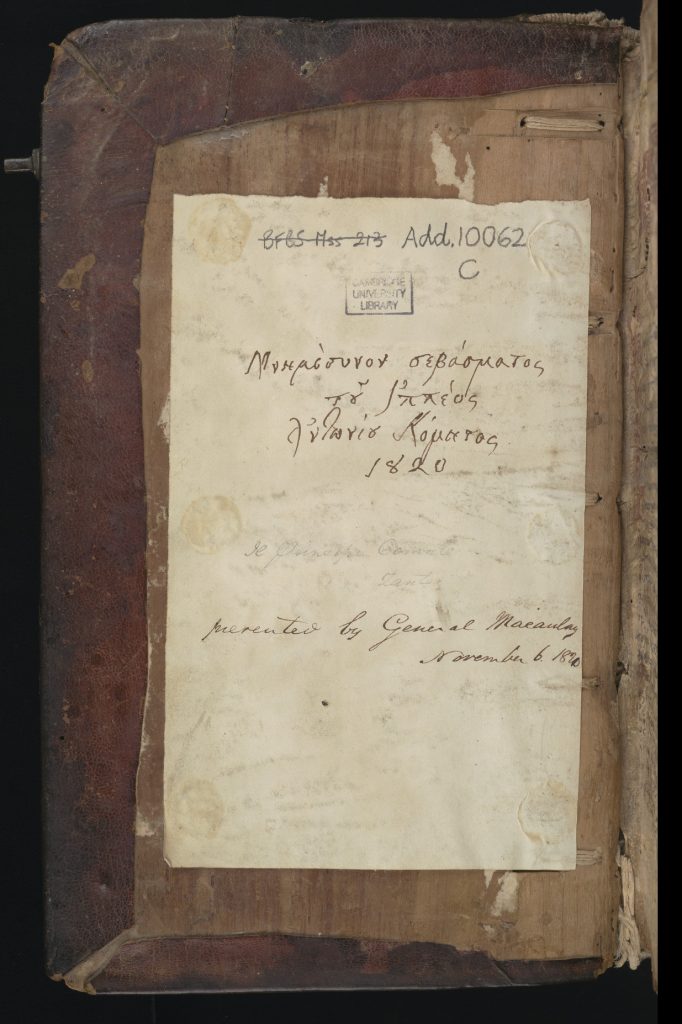 BFBS Mss 213 Add.10062
C
CAMBRIDGE
UNIVERSITY
LIBRARY
Μνημόσυνον σεβάσματος
τοῦ Ἱππέος
Ἀντωνίου Κόματος
1820
Zante
presented by General Macaulay
November 6. 1820